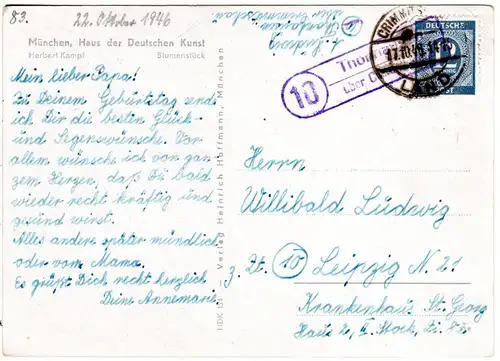 83. 22. Oktober 1946
München, Haus der Deutschen Kunst
Herbert Kampf Blumenstück
Mein lieber Papa!
Zu Deinem Geburtstag send
ich Dir die besten Glück-
und Segenswünsche. Vor
allem wünsche ich von gan-
zem Herzen, daß Du bald
wieder recht kräftig und
gesund wirst.
Alles andere später mündlich
oder von Mama.
Es grüßt Dich recht herzlich
Deine Annemarie
HDK – Verlag Heinrich Hoffmann, München
Ludwig
über Crimmitschau
10
über
DEUTSCHE
12
Herrn
Willibald Ludwig
z. Zt. 10 Leipzig N. 21
Krankenhaus St. Georg
Haus 2, II. Stock,